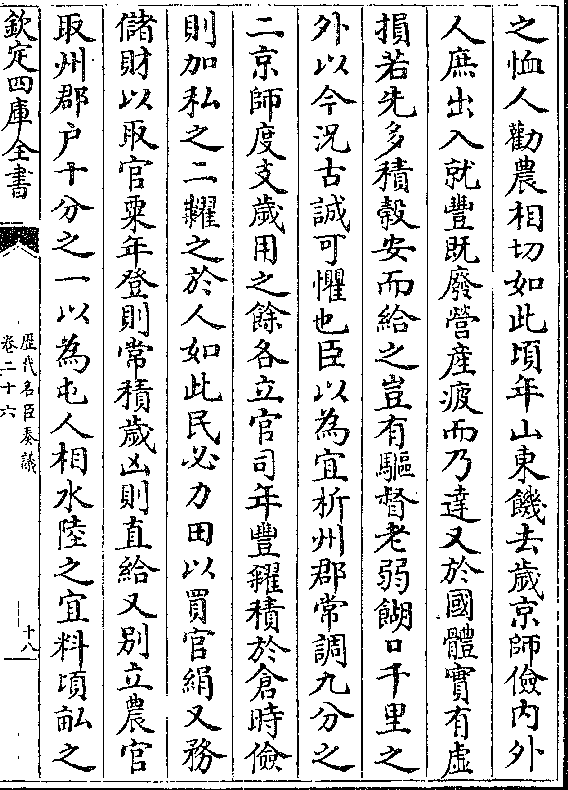 之恤人勸農相切如此頃年山東饑去歲京師儉内外
人庶出入就豐既廢營産疲而乃達又於國體實有虚
損若先多積穀安而給之豈有驅督老弱餬口千里之
外以今況古誠可懼也臣以為宜析州郡常調九分之
二京師度支歲用之餘各立官司年豐糴積於倉時儉
則加私之二糶之於人如此民必力田以買官絹又務
儲財以取官粟年登則常積歲凶則直給又别立農官
取州郡户十分之一以為屯人相水陸之宜料頃畝之
欽定四庫全書
歷代名臣奏議
卷二十六
十八